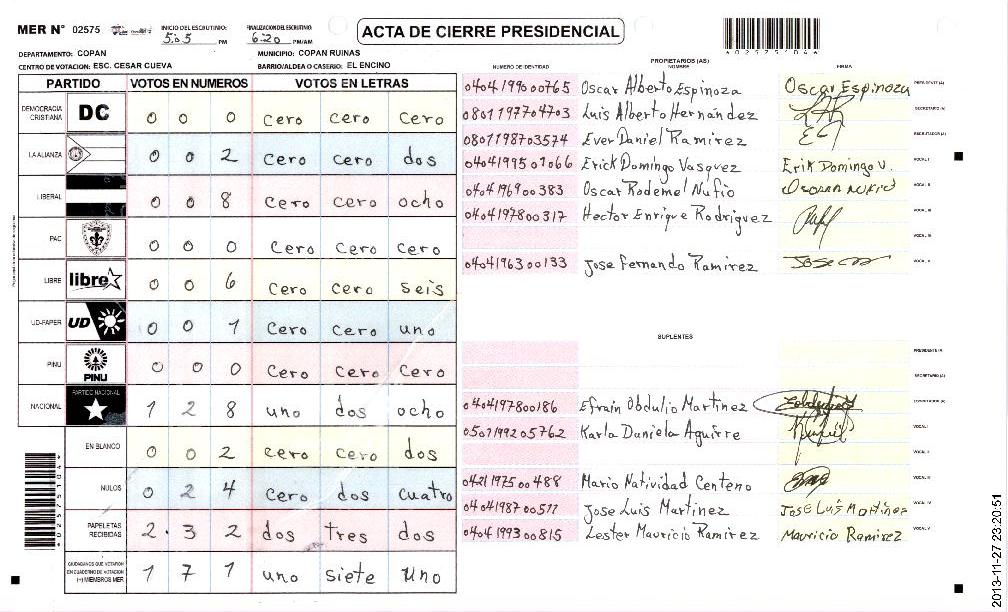 MER N° 02575 INICIO DEL ESCRUTINIO: 5:05 PM FINALIZACION DEL ESCRUTINIO: 6:20 PM/AM
ACTA DE CIERRE PRESIDENCIAL
*025751044*
DEPARTAMENTO: COPAN MUNICIPIO: COPAN RUINAS
CENTRO DE VOTACION: ESC. CESAR CUEVA BARRIO/ALDEA O CASERIO: EL ENCINO
PARTIDO VOTOS EN NUMEROS VOTOS EN LETRAS
DEMOCRACIA CRISTIANA DC 0 0 0 cero cero cero
LA ALIANZA 0 0 2 cero cero dos
LIBERAL 0 0 8 cero cero ocho
PAC 0 0 0 cero cero cero
LIBRE libre 0 0 6 cero cero seis
UD-FAPER UD 0 0 1 cero cero uno
PINU PINU 0 0 0 cero cero cero
NACIONAL PARTIDO NACIONAL 1 2 8 uno dos ocho
EN BLANCO 0 0 2 cero cero dos
NULOS 0 2 4 cero dos cuatro
PAPELETAS RECIBIDAS 2 3 2 dos tres dos
CIUDADANOS QUE VOTARON EN CUADERNO DE VOTACION (+) MIEMBROS MER 1 7 1 uno siete uno
*025751044*
PROPIETARIOS (AS)
NUMERO DE IDENTIDAD NOMBRE FIRMA
0404199000765 Oscar Alberto Espinoza Oscar Espinoza PRESIDENTE (A)
0801197704703 Luis Alberto Hernández SECRETARIO (A)
0801198703574 Ever Daniel Ramirez ESCRUTADOR (A)
0404199501066 Erick Domingo Vasquez Erik Domingo V. VOCAL I
0404196900383 Oscar Rodemel Nufio Oscar Nufio VOCAL II
0404197800317 Hector Enrique Rodriguez VOCAL III
VOCAL IV
0404196300133 Jose Fernando Ramirez Jose VOCAL V
SUPLENTES
PRESIDENTE (A)
SECRETARIO (A)
0404197800186 Efrain Obdulio Martinez ESCRUTADOR (A)
0507199205762 Karla Daniela Aguirre VOCAL I
VOCAL II
0421197500488 Mario Natividad Centeno VOCAL III
0404198700511 Jose Luis Martinez Jose Luis Martinez VOCAL IV
0404199300815 Lester Mauricio Ramirez Mauricio Ramirez VOCAL V
2013-11-27 23:20:51